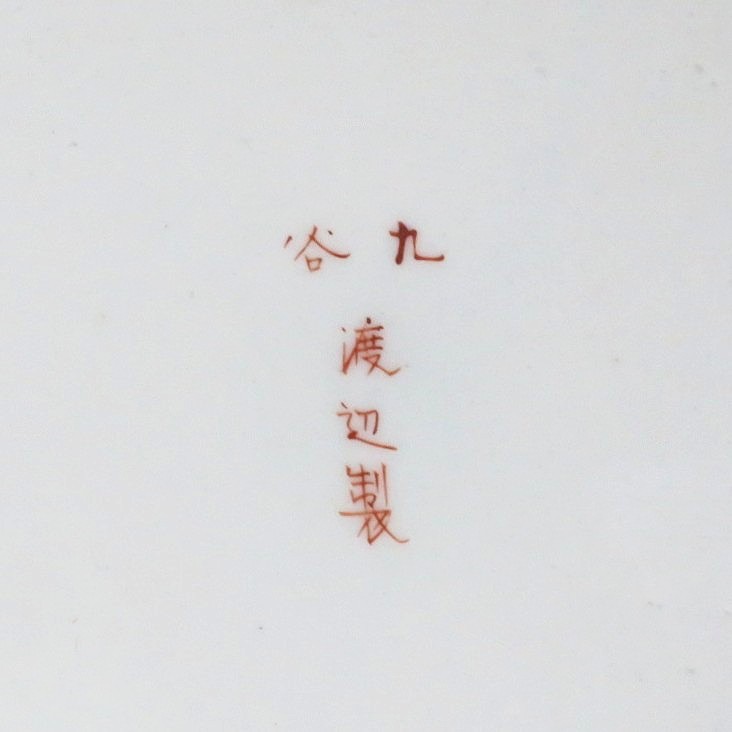 九谷
渡辺製